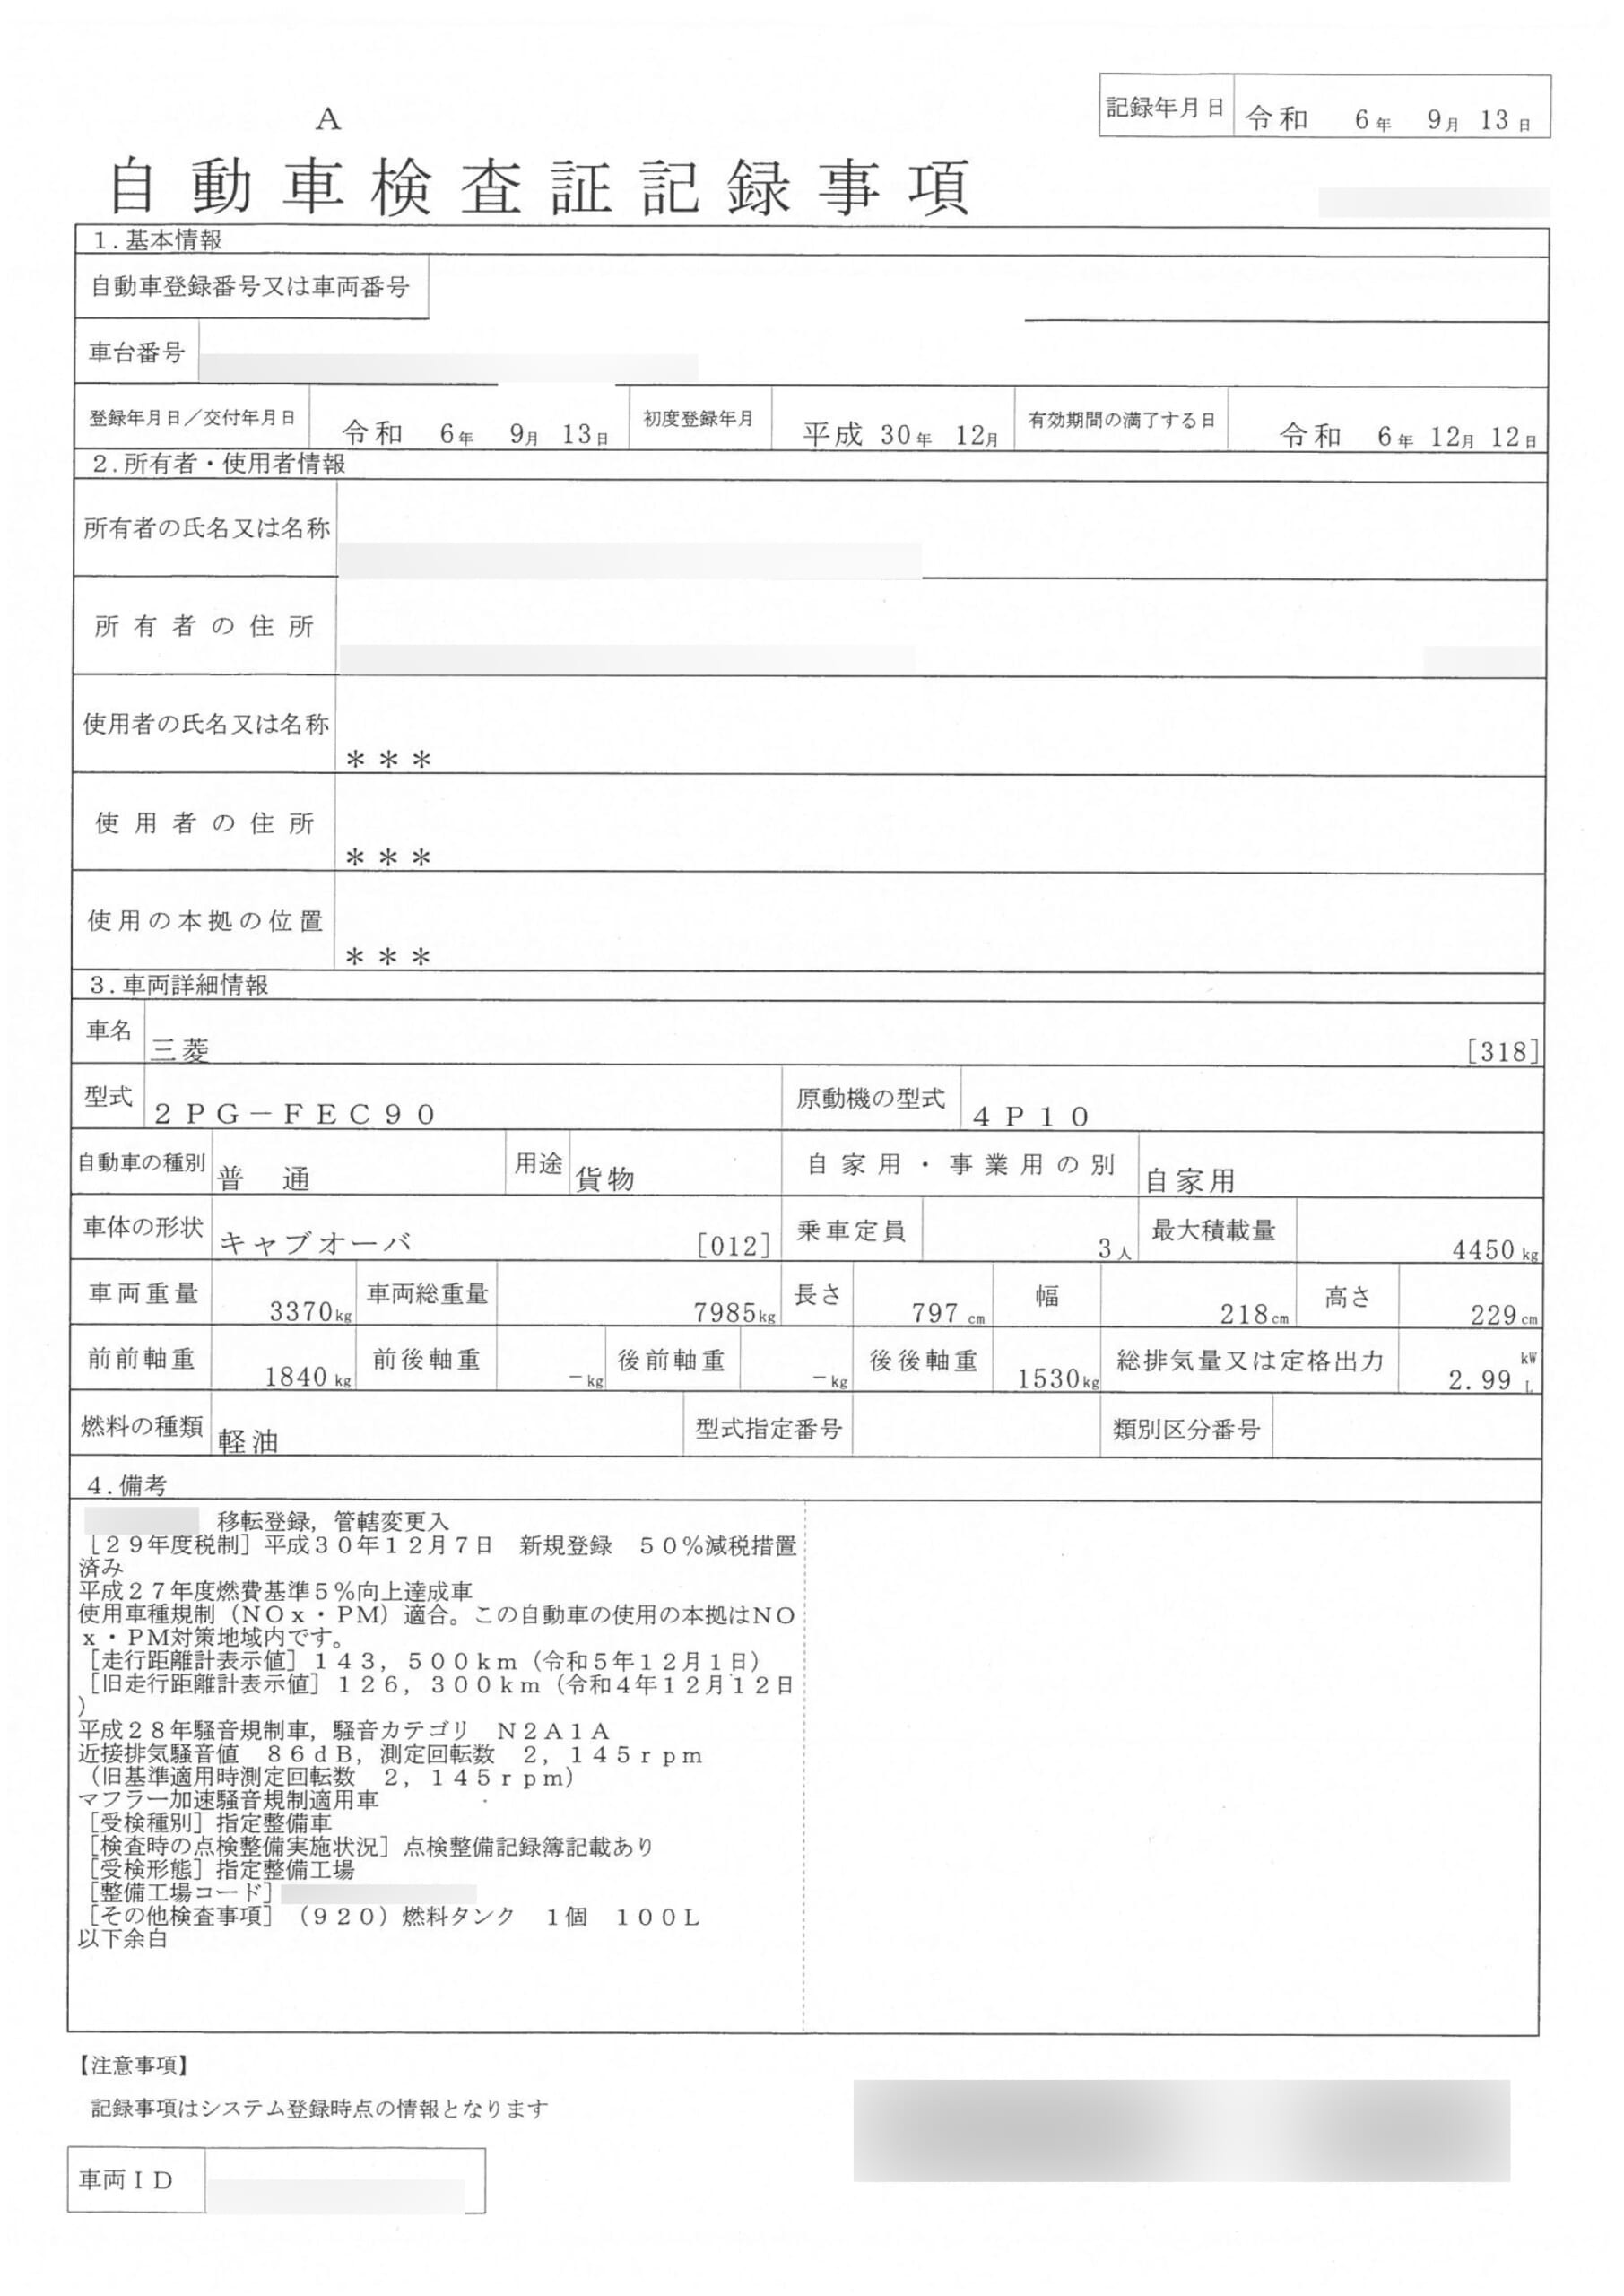 記録年月日 令和 6年 9月 13日
A
自動車検査証記録事項
1.基本情報
自動車登録番号又は車両番号
車台番号
登録年月日／交付年月日 令和 6年 9月 13日 初度登録年月 平成 30年 12月 有効期間の満了する日 令和 6年 12月 12日
2.所有者・使用者情報
所有者の氏名又は名称
所有者の住所
使用者の氏名又は名称 ＊＊＊
使用者の住所 ＊＊＊
使用の本拠の位置 ＊＊＊
3.車両詳細情報
車名 三菱 [318]
型式 2PG－FEC90 原動機の型式 4P10
自動車の種別 普 通 用途 貨物 自家用・事業用の別 自家用
車体の形状 キャブオーバ [012] 乗車定員 3人 最大積載量 4450kg
車両重量 3370kg 車両総重量 7985kg 長さ 797cm 幅 218cm 高さ 229cm
前前軸重 1840kg 前後軸重 －kg 後前軸重 －kg 後後軸重 1530kg 総排気量又は定格出力 2.99 kW L
燃料の種類 軽油 型式指定番号 類別区分番号
4.備考
移転登録，管轄変更入
［29年度税制］平成30年12月7日 新規登録 50％減税措置
済み
平成27年度燃費基準5％向上達成車
使用車種規制（NOx・PM）適合。この自動車の使用の本拠はNO
x・PM対策地域内です。
［走行距離計表示値］143，500km（令和5年12月1日）
［旧走行距離計表示値］126，300km（令和4年12月12日
）
平成28年騒音規制車，騒音カテゴリ N2A1A
近接排気騒音値 86dB，測定回転数 2，145rpm
（旧基準適用時測定回転数 2，145rpm）
マフラー加速騒音規制適用車
［受検種別］指定整備車
［検査時の点検整備実施状況］点検整備記録簿記載あり
［受検形態］指定整備工場
［整備工場コード］
［その他検査事項］（920）燃料タンク 1個 100L
以下余白
【注意事項】
記録事項はシステム登録時点の情報となります
車両ID